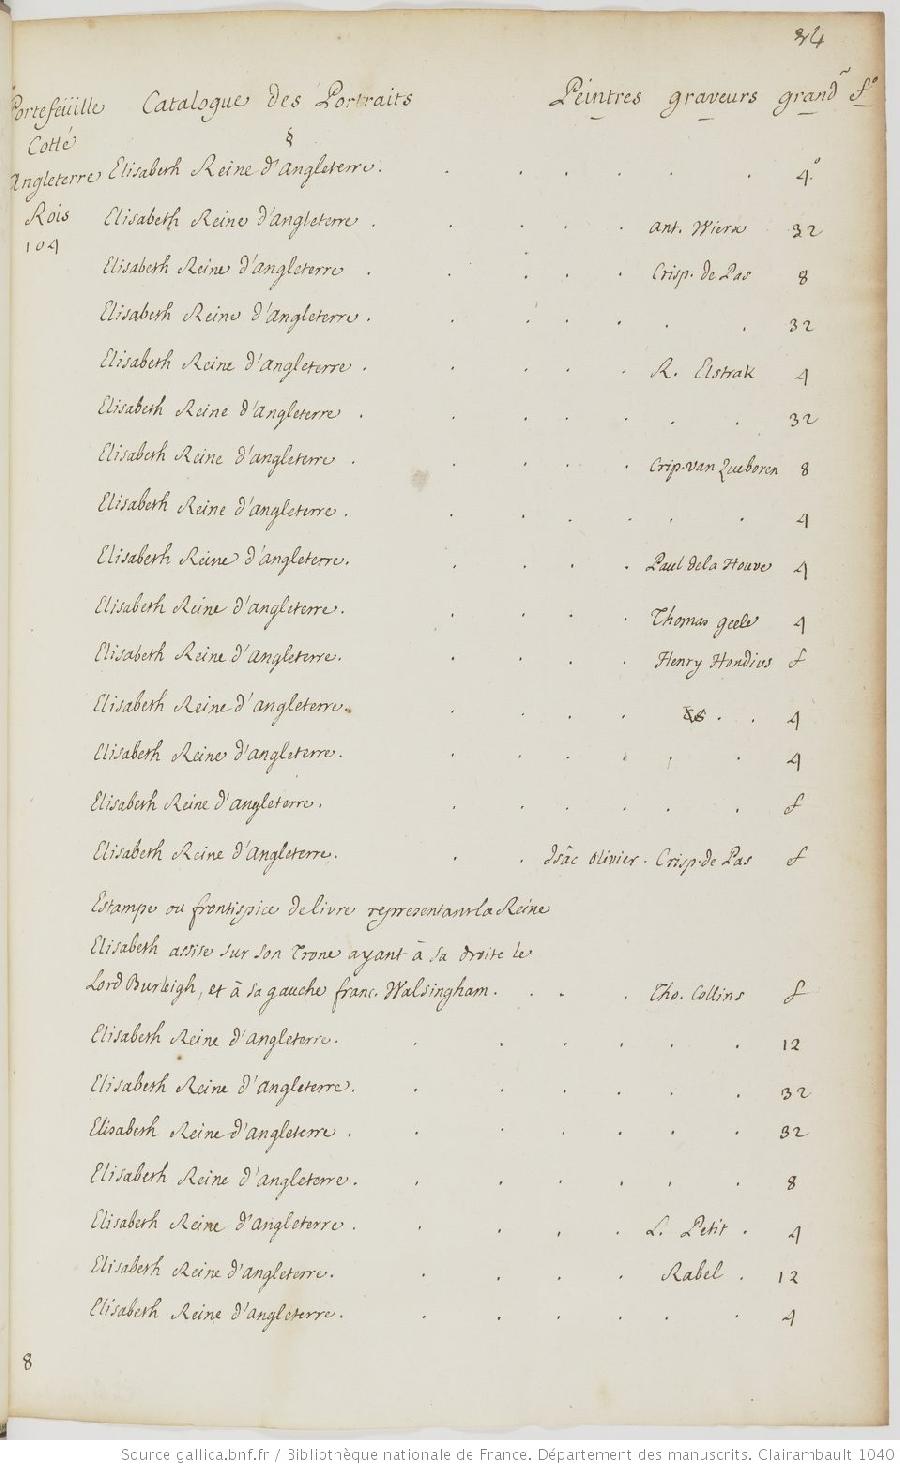 34
Portefeüille Catalogue des Portraits Peintres graveurs grandr fo
Cotté §
Angleterre Elisabeth Reine d'angleterre. 4o
Rois Elisabeth Reine d'angleterre. ant. Wierx 32
104
Elisabeth Reine d'angleterre. Crisp. de Pas 8
Elisabeth Reine d'angleterre. 32
Elisabeth Reine d'angleterre. R. Elstrak 4
Elisabeth Reine d'angleterre. 32
Elisabeth Reine d'angleterre. Crip. van Queboren 8
Elisabeth Reine d'angleterre. 4
Elisabeth Reine d'angleterre. Paul dela Houve 4
Elisabeth Reine d'angleterre. Thomas geele 4
Elisabeth Reine d'angleterre. Henry Hondius f
Elisabeth Reine d'angleterre. 4
Elisabeth Reine d'angleterre. 4
Elisabeth Reine d'angleterre. f
Elisabeth Reine d'angleterre. Isâc Olivier. Crisp. de Pas f
Estampe ou frontispice de livre representant la Reine
Elisabeth assise sur son Trone ayant à sa droite le
Lord Burleigh, et à sa gauche franc. Walsingham. Tho. Collins f
Elisabeth Reine d'angleterre. 12
Elisabeth Reine d'angleterre. 32
Elisabeth Reine d'angleterre. 32
Elisabeth Reine d'angleterre. 8
Elisabeth Reine d'angleterre. L. Petit. 4
Elisabeth Reine d'angleterre. Rabel. 12
Elisabeth Reine d'angleterre. 4
8
Source gallica.bnf.fr / Bibliothèque nationale de France. Département des manuscrits. Clairambault 1040